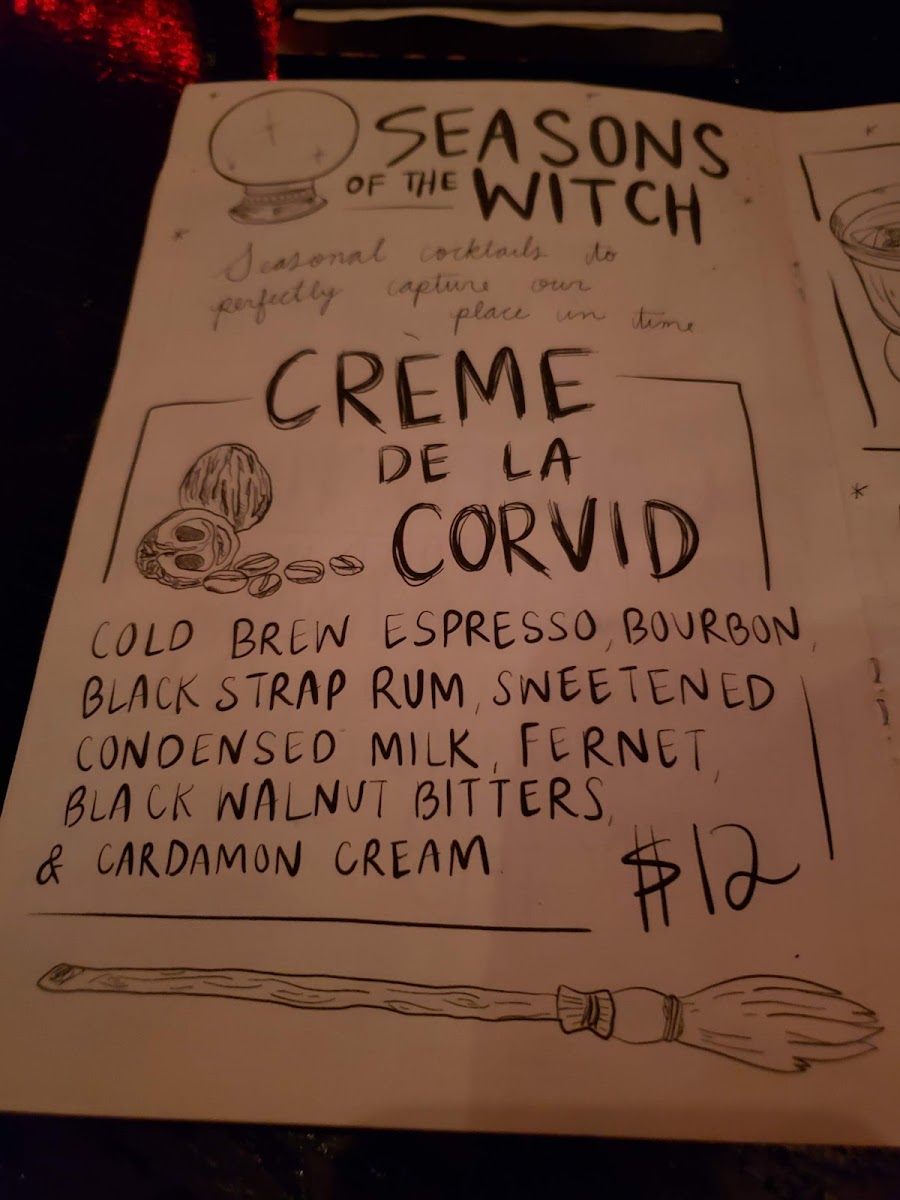 SEASONS
OF THE WITCH
Seasonal cocktails to
perfectly capture our
place in time
CRÈME
DE LA
CORVID
COLD BREW ESPRESSO, BOURBON,
BLACK STRAP RUM, SWEETENED
CONDENSED MILK, FERNET,
BLACK WALNUT BITTERS,
& CARDAMON CREAM.
$12